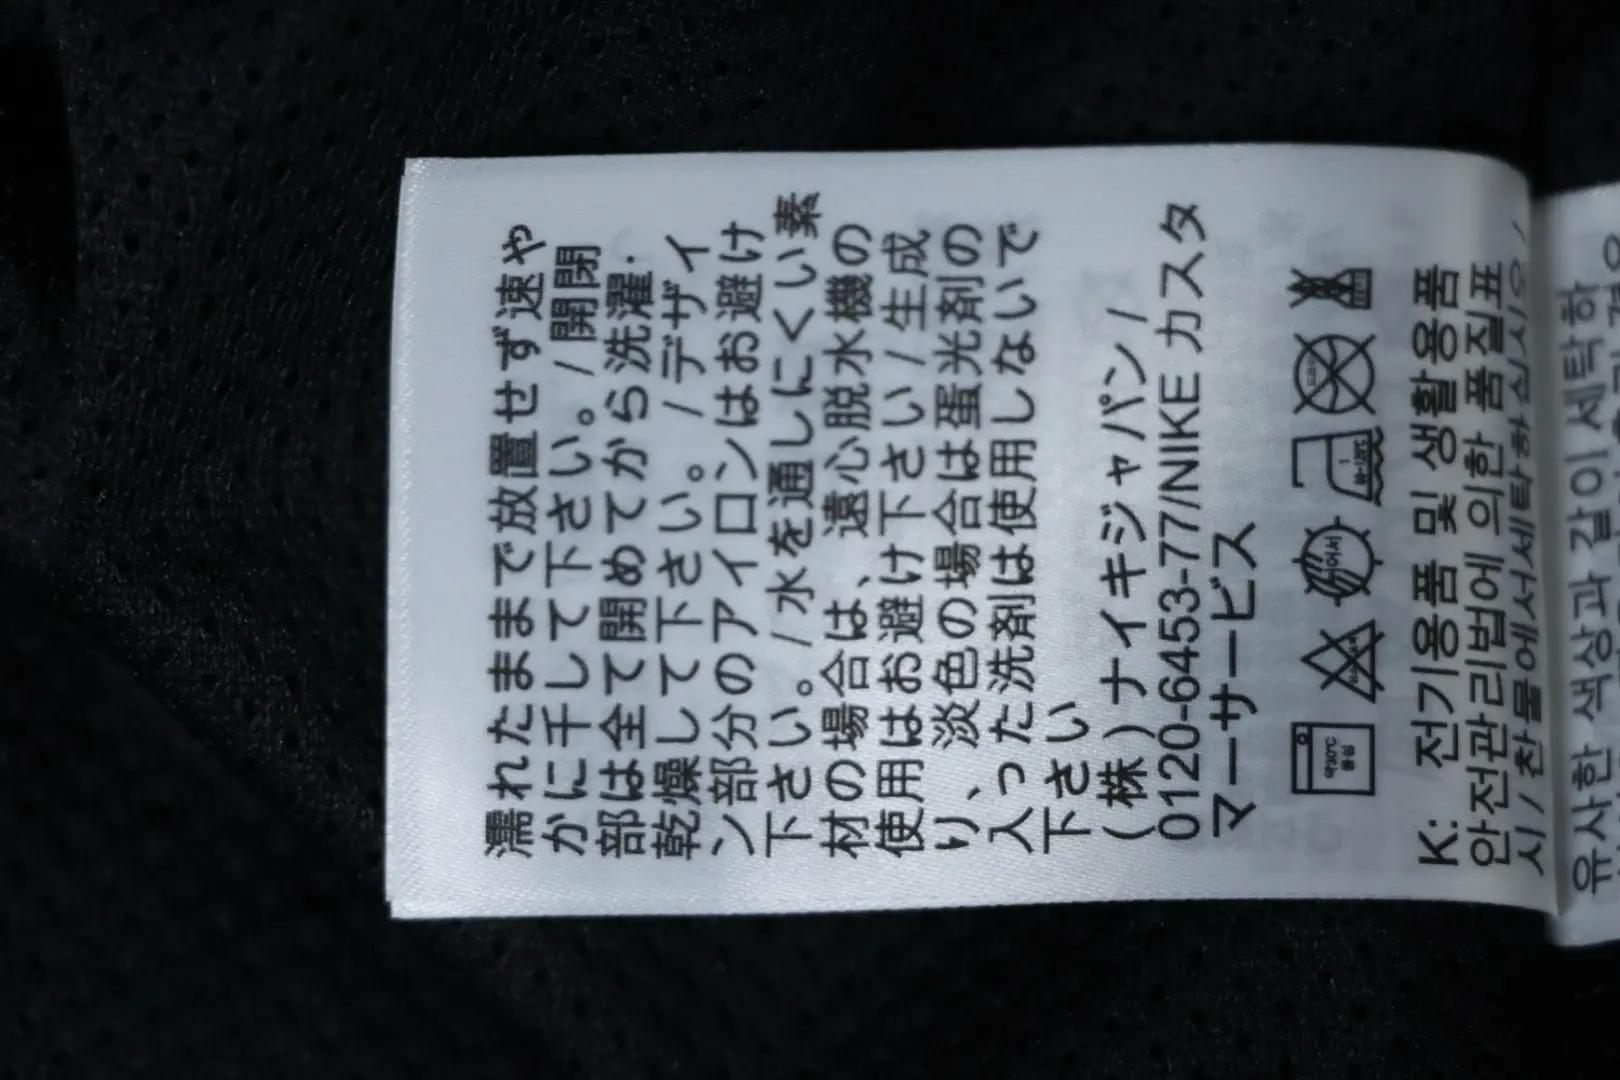 濡れたままで放置せず速や
かに干して下さい。/ 開閉
部は全て開めてから洗濯・
乾燥して下さい。/ デザイ
ン部分のアイロンはお避け
下さい。/ 水を通しにくい素
材の場合は、遠心脱水機の
使用はお避け下さい / 生成
り、淡色の場合は蛋光剤の
入った洗剤は使用しないで
下さい
(株) ナイキジャパン /
0120-6453-77/NIKE カスタ
マーサービス
약30℃
중성
뉘어서
K: 전기용품 및 생활용품
안전관리법에 의한 품질표
시 / 찬물에서세탁하십시오 /
유사한 색상과 같이 세탁하